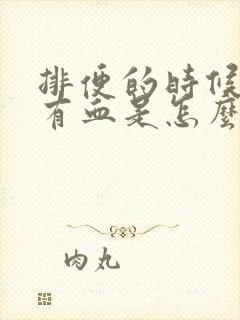 排便的時候
有血是怎麼
肉丸